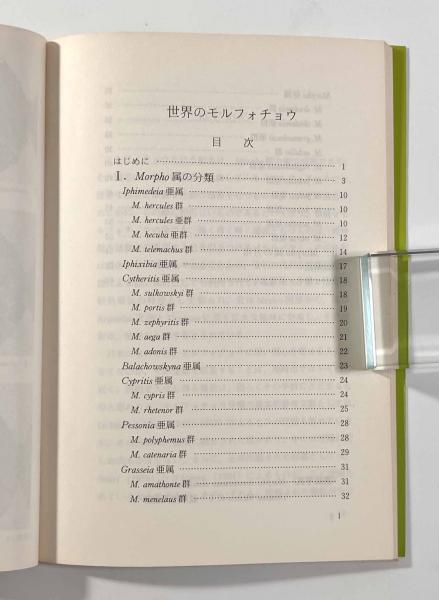 世界のモルフォチョウ
目 次
はじめに 1
I. Morpho 属の分類 3
Iphimedeia 亜属 10
M. hercules 群 10
M. hercules 亜群 10
M. hecuba 亜群 12
M. telemachus 群 14
Iphixibia 亜属 17
Cytheritis 亜属 18
M. sulkowskyi 群 18
M. portis 群 19
M. zephyritis 群 20
M. aega 群 21
M. adonis 群 22
Balachowskyna 亜属 23
Cypritis 亜属 24
M. cypris 群 24
M. rhetenor 群 25
Pessonia 亜属 28
M. polyphemus 群 28
M. catenaria 群 29
Grasseia 亜属 31
M. amathonte 群 31
M. menelaus 群 32
1